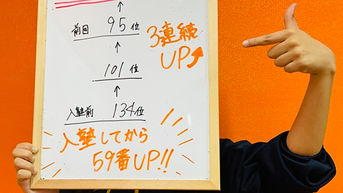 ↑
前回 95位
3連続
UP
↑
101位
↑
入塾前 134位
入塾してから
59番UP!!